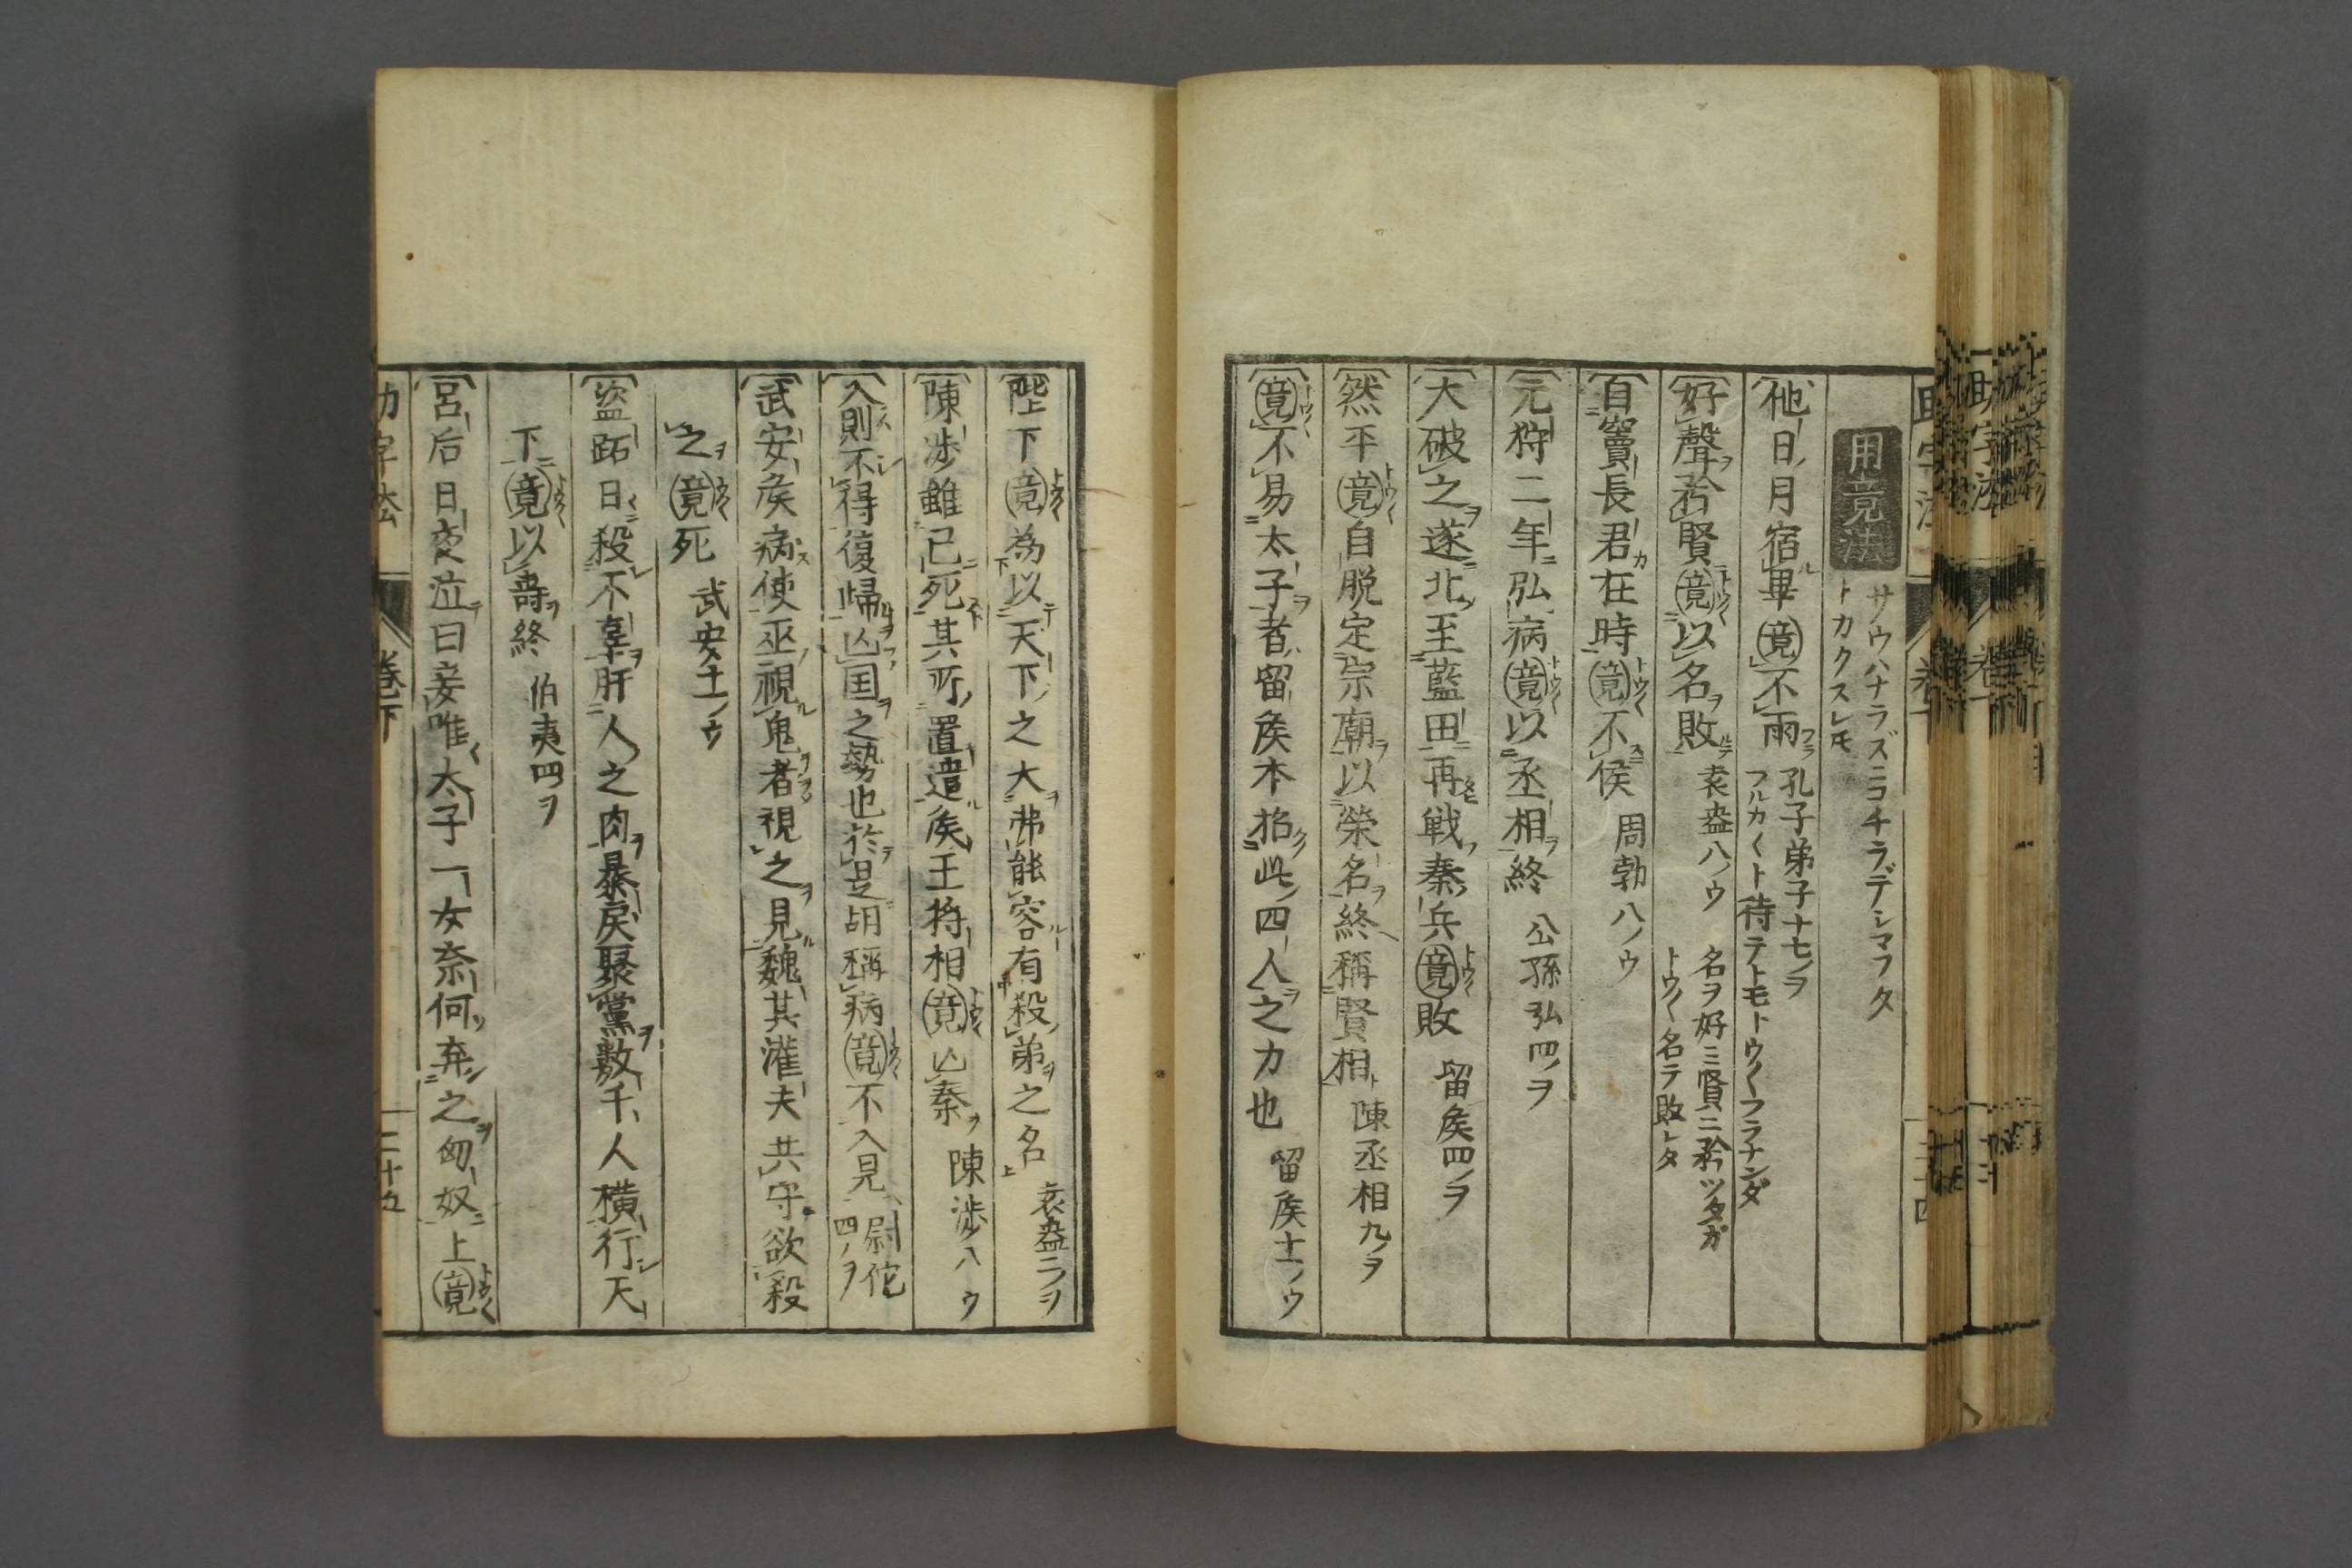 用竟法
サウハナラズニコチラデシマフタ
トカクスレモ
他日月宿畢竟不雨 孔子弟子十七ノヲ
フルカ〱ト待テトモトウ〱フラナンダ
好聲矜賢竟以名敗 袁盎八ノウ 名ヲ好ミ賢ニ矜ツタガ
トウ〱名テ敗レタ
自竇長君在時竟不侯 周勃八ノウ
元狩二年弘病竟以丞相終 公孫弘四ノヲ
大破之遂北至藍田再戦秦兵竟敗 留侯四ノヲ
然平竟自脱定宗廟以榮名終稱賢相 陳丞相九ノヲ
竟不易太子者留侯本招此四人之力也 留侯十一ノウ
陛下竟為以天下之大弗能容有殺弟之名 袁盎二ノヲ
陳渉雖已死其所置遣侯王将相竟亾秦 陳渉八ノウ
入則不得復歸亾国之勢也於是胡稱病竟不入見 尉佗
四ノヲ
武安侯病使巫視鬼者視之見魏其灌夫共守欲殺
之竟死 武安十一ノウ
盗跖日殺不辜肝人之肉暴戻聚黨數千人横行天
下竟以壽終 伯夷四ノヲ
呂后日夜泣曰妾唯太子一女奈何弃之匈奴上竟
助字法 巻下 二十五